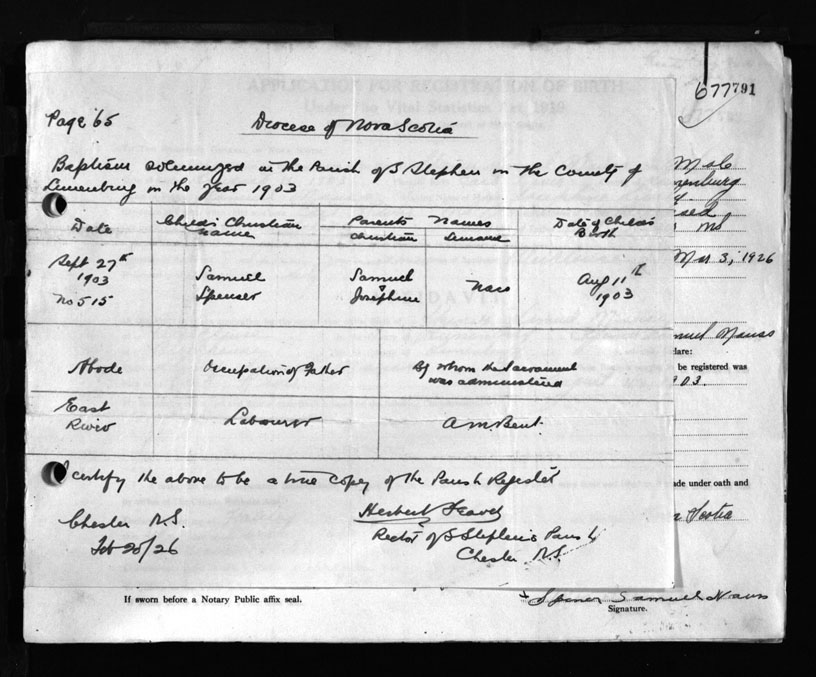 APPLICATION FOR REGISTRATION OF BIRTH
Under the Vital Statistics Act, 1919
677791
Page 65
Diocese of Nova Scotia
Baptism solemnized in the Parish of S Stephen in the County of
Lunenburg in the year 1903
Date
Child's Christian
name
Parents Names
Christian
Surname
Date of Child's
Birth
Sept 27th
1903
No 515
Samuel
Spenser
Samuel
Josephine
Nass
Aug 11th
1903
Abode
Occupation of Father
By whom the Sacrament
was administered
East
River
Labourer
A M Bent.
I certify the above to be a true copy of the Parish Register
Chester N.S.
Feb 20/26
Herbert
Rector of S Stephen's Parish
Chester N.S.
Male
nenburg
Mar 3, 1926
muel Nauss
lare:
be registered was
903.
ade under oath and
Scotia
If sworn before a Notary Public affix seal.
Samuel Nauss
Signature.